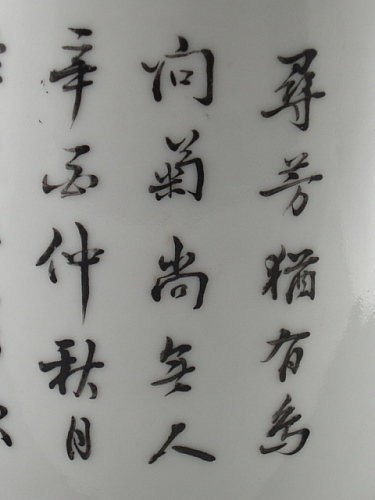 尋芳猶有鳥
問菊尚無人
辛酉仲秋月